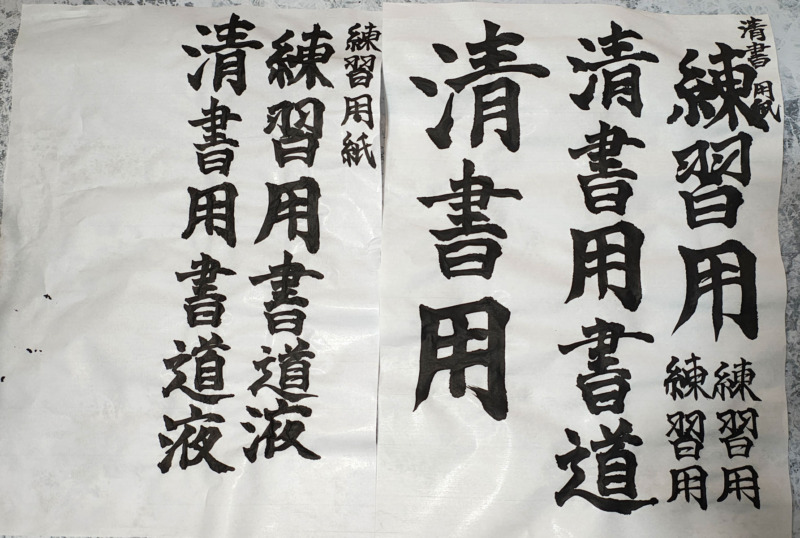 清書用紙
練習用
練習用
練習用
清書用書道
清書用
練習用紙
練習用書道液
清書用書道液